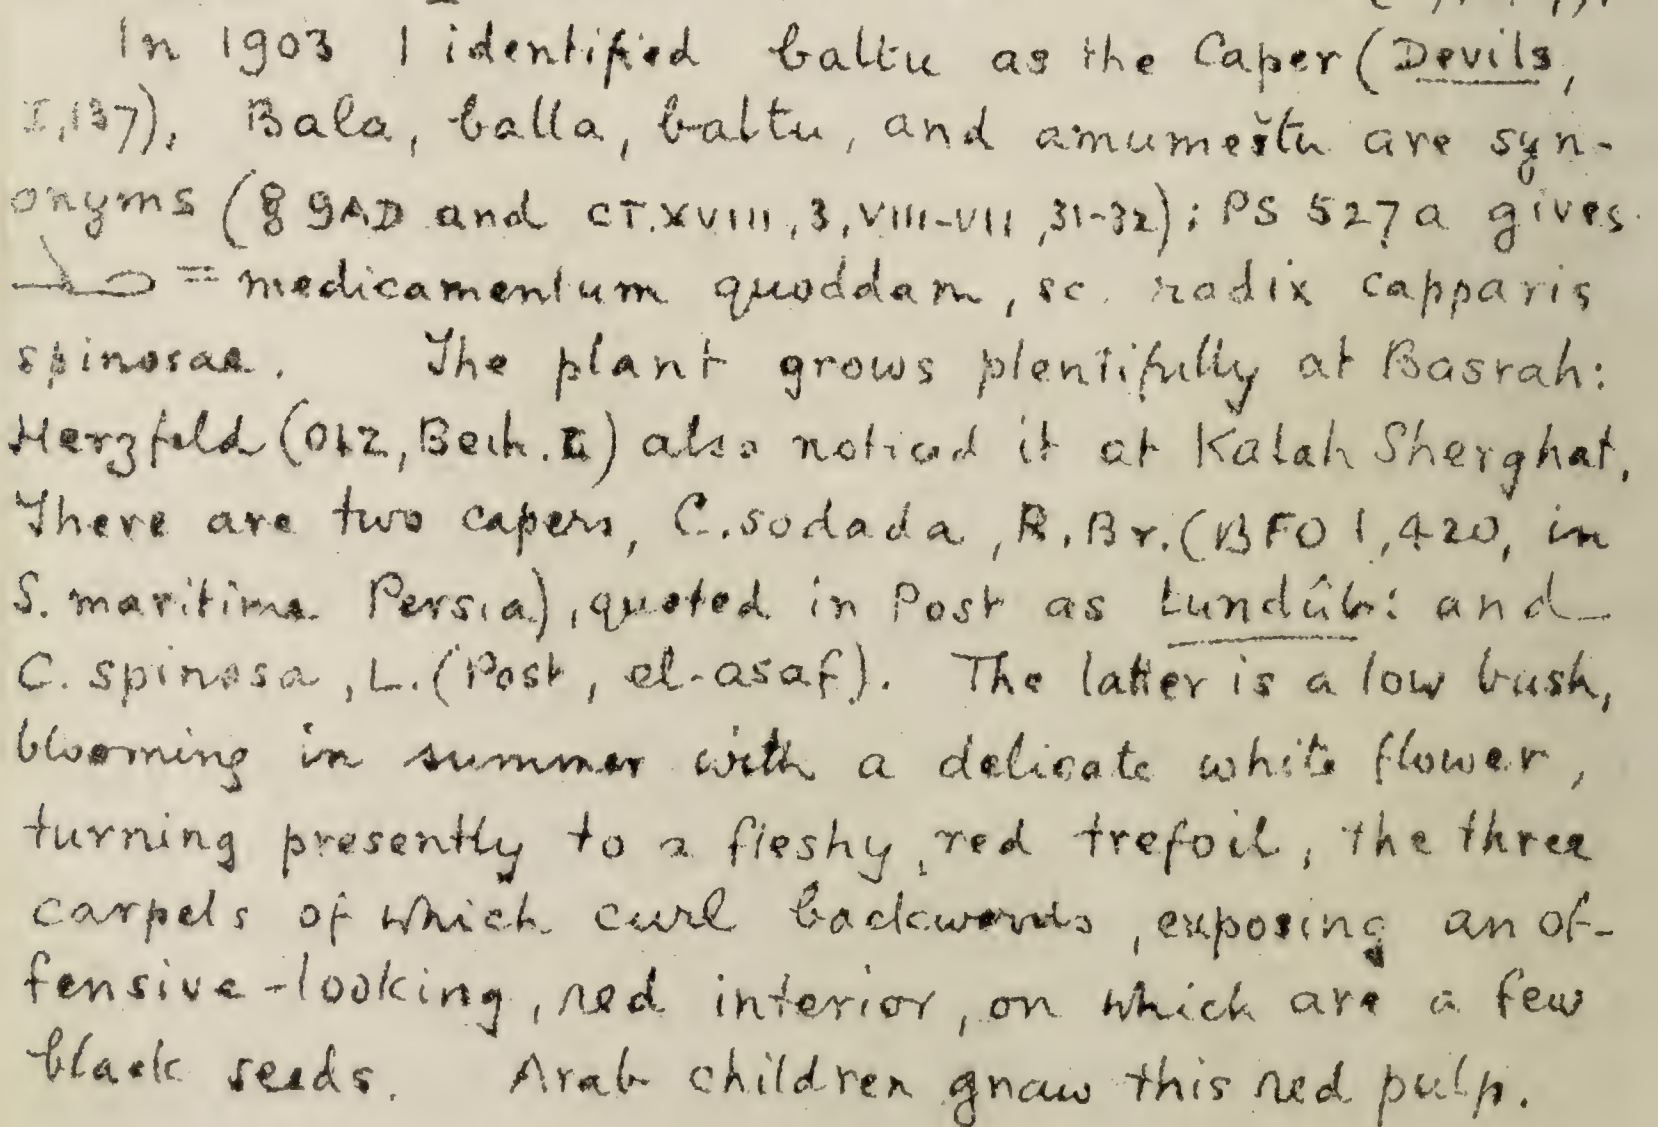 In 1903 I identified baltu as the Caper (Devils,
I, 137). Bala, balla, baltu, and amumeštu are syn-
onyms (§ 9AD and CT. XVIII, 3, VIII-VII, 31-32); PS 527a gives
= medicamentum quoddam, sc. radix capparis
spinosae. The plant grows plentifully at Basrah:
Herzfeld (OLZ, Beih. II) also noticed it at Kalah Sherghat.
There are two capers, C. sodada, R. Br. (BFO 1, 420, in
S. maritime Persia), quoted in Post as tundûb: and
C. spinosa, L. (Post, el-asaf). The latter is a low bush,
blooming in summer with a delicate white flower,
turning presently to a fleshy, red trefoil, the three
carpels of which curl backwards, exposing an of-
fensive-looking, red interior, on which are a few
black seeds. Arab children gnaw this red pulp.